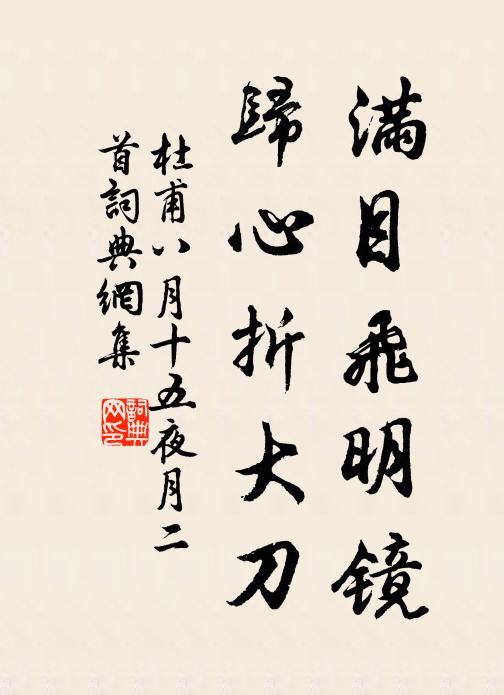 滿目飛明镜
歸心折大刀
杜甫八月十五夜月二
首詞典網集
詞典
网印